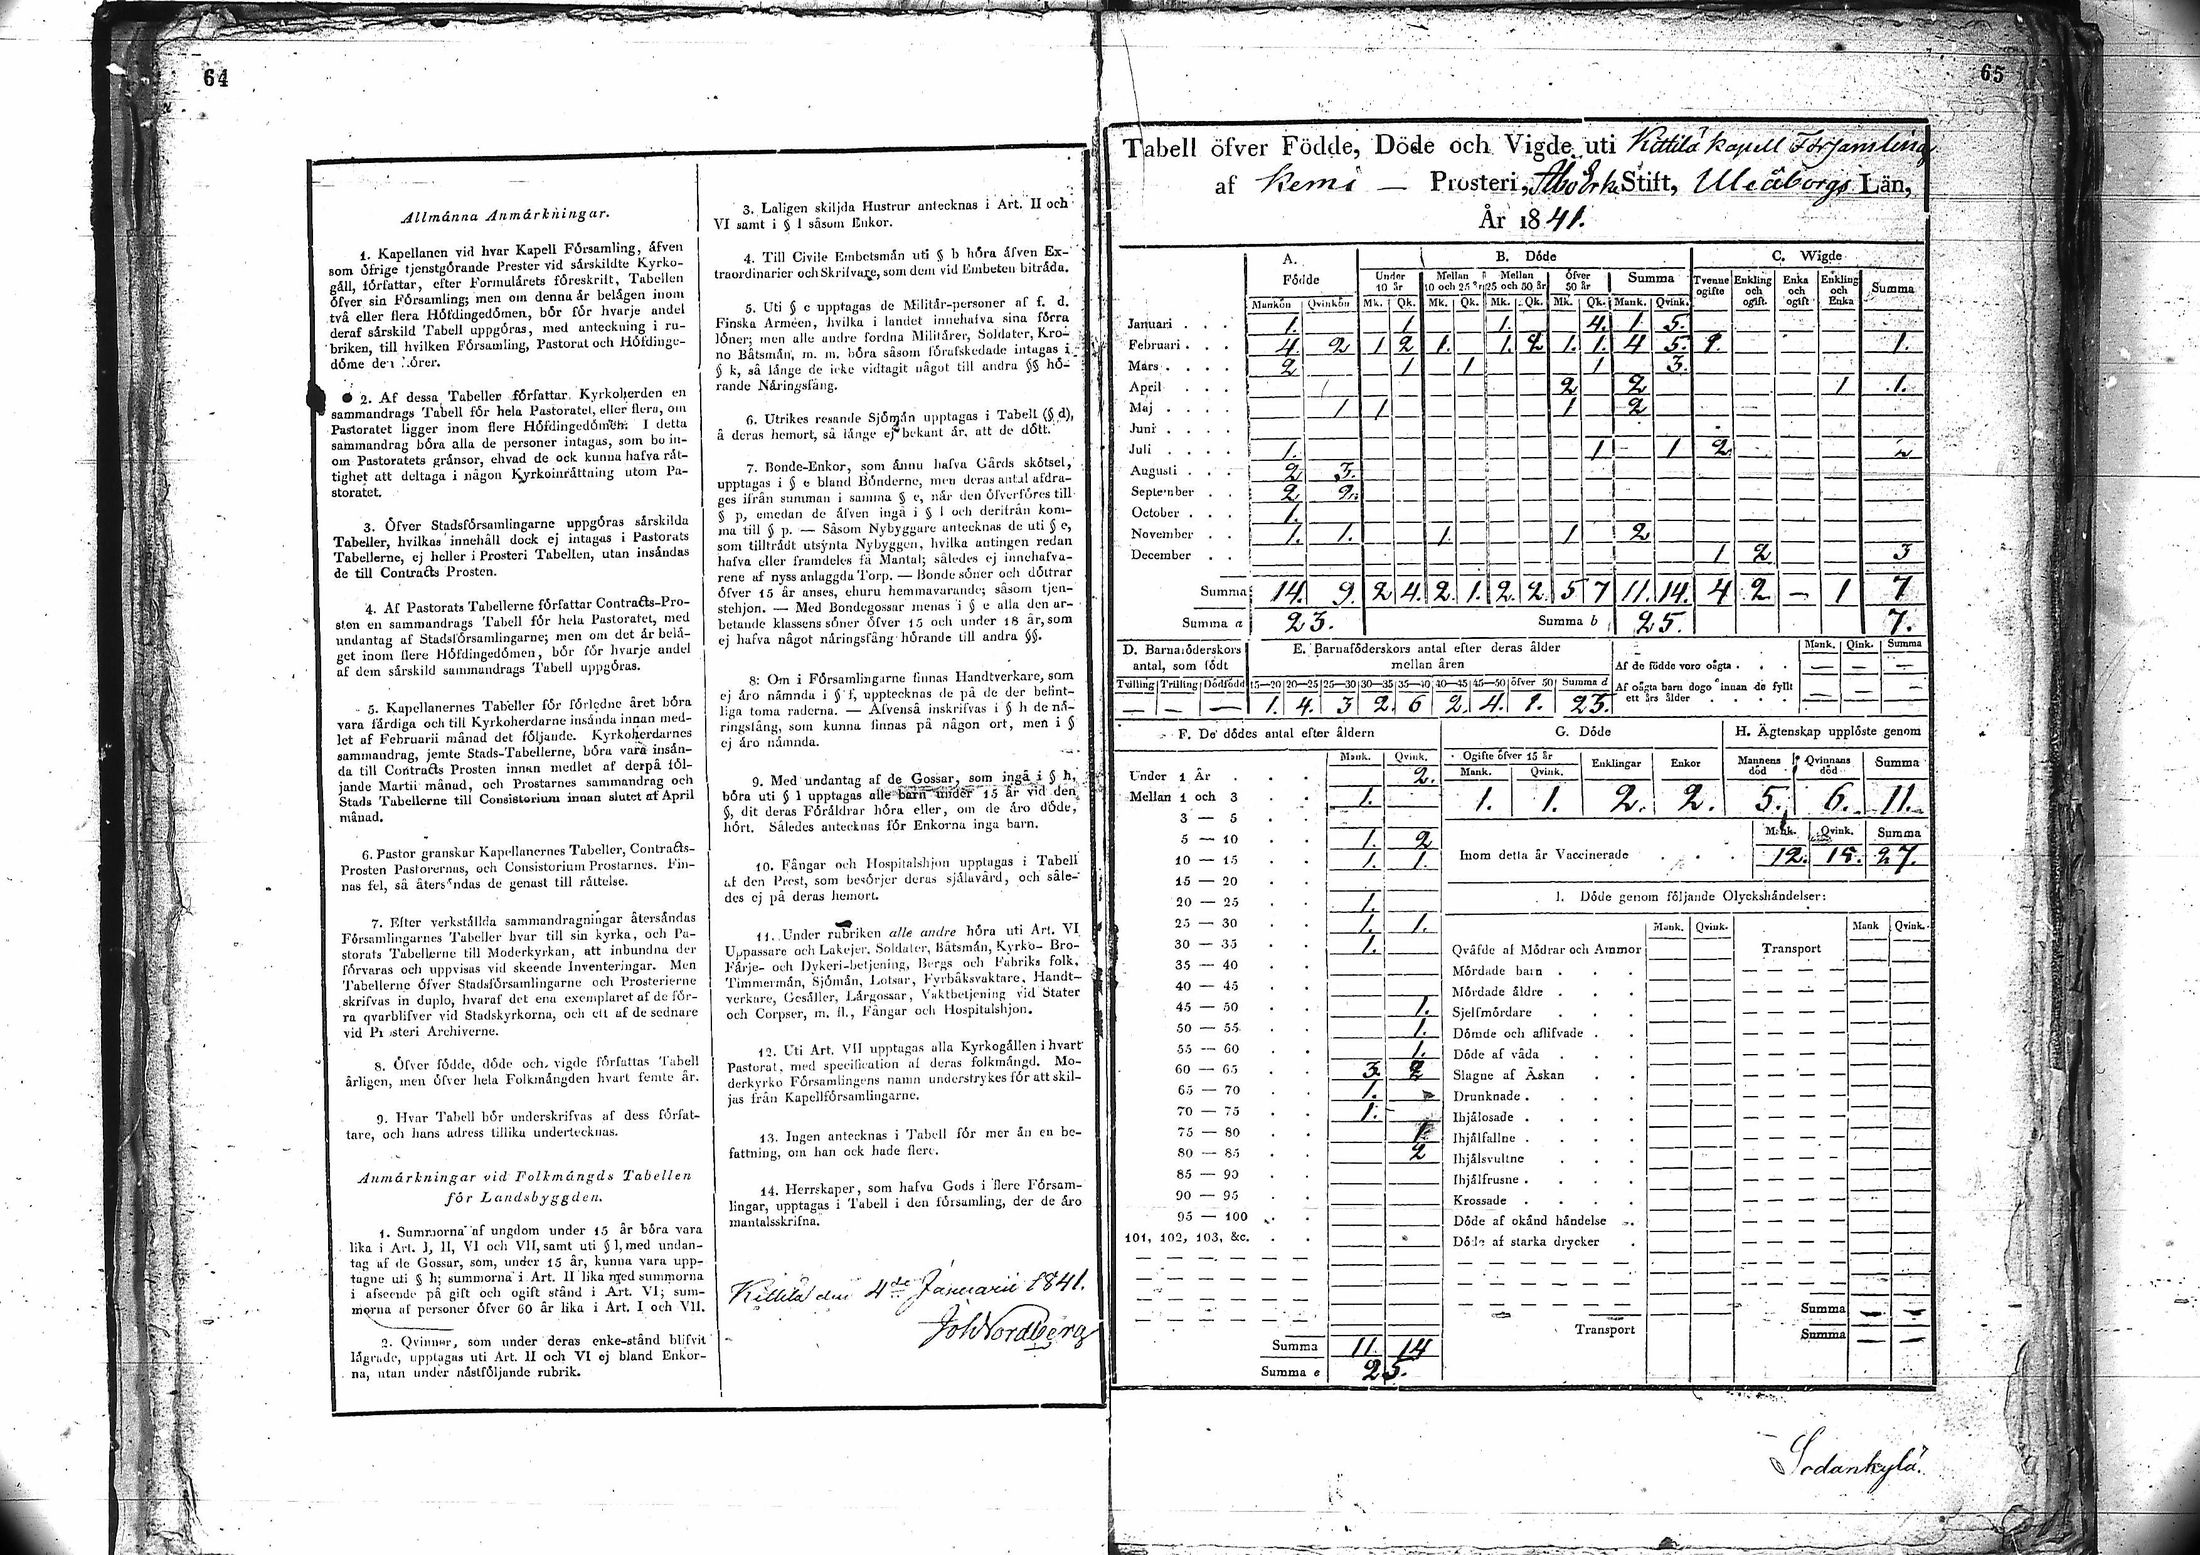 64
Allmánna Anmárkningar.
1. Kapellanen vid hvar Kapell Fórsamling, áfven
som ófrige tjenstgórande Prester vid sárskildte Kyrko-
gáll, fórfattar, efter Formulárets fóreskrift, Tabellen
ófver sin Fórsamling; men om denna ár belágen inom
två eller flera Hófdingedómen, bór fór hvarje andel
deraf sárskild Tabell uppgóras, med anteckning i ru-
briken, till hvilken Fórsamling, Pastorat och Hófdinge-
dóme den hórer.
2. Af dessa Tabeller fórfattar Kyrkoherden en
sammandrags Tabell fór hela Pastoratet, eller flera, om
Pastoratet ligger inom flere Hófdingedómen. I detta
sammandrag bóra alla de personer intagas, som bo in-
om Pastoratets gránsor, ehvad de ock kunna hafva rát-
tighet att deltaga i någon Kyrkoinráttning utom Pa-
storatet.
3. Öfver Stadsfórsamlingarne uppgóras sárskilda
Tabeller, hvilkas innehåll dock ej intagas i Pastorats
Tabellerne, ej heller i Prosteri Tabellen, utan insándas
de till Contracts Prosten.
4. Af Pastorats Tabellerne fórfattar Contracts-Pro-
sten en sammandrags Tabell fór hela Pastoratet, med
undantag af Stadsfórsamlingarne; men om det ár belá-
get inom flere Hófdingedómen, bór fór hvarje andel
af dem sárskild sammandrags Tabell uppgóras.
5. Kapellanernes Tabeller fór fórledne året bóra
vara fárdiga och till Kyrkoherdarne insánda innan med-
let af Februarii månad det fóljande. Kyrkoherdarnes
sammandrag, jemte Stads-Tabellerne, bóra vara insán-
da till Contracts Prosten innan medlet af derpå fól-
jande Martii månad, och Prostarnes sammandrag och
Stads Tabellerne till Consistorium innan slutet af April
månad.
6. Pastor granskar Kapellanernes Tabeller, Contracts-
Prosten Pastorernas, och Consistorium Prostarnes. Fin-
nas fel, så återsándas de genast till ráttelse.
7. Efter verkstállda sammandragningar återsándas
Fórsamlingarnes Tabeller hvar till sin kyrka, och Pa-
storats Tabellerne till Moderkyrkan, att inbundna der
fórvaras och uppvisas vid skeende Inventeringar. Men
Tabellerne ófver Stadsfórsamlingarne och Prosterierne
skrifvas in duplo, hvaraf det ena exemplaret af de fór-
ra qvarblifver vid Stadskyrkorna, och ett af de sednare
vid Prosteri Archiverne.
8. Öfver fódde, dóde och vigde fórfattas Tabell
årligen, men ófver hela Folkmángden hvart femte år.
9. Hvar Tabell bór underskrifvas af dess fórfat-
tare, och hans adress tillika undertecknas.
Anmárkningar vid Folkmángds Tabellen
fór Landsbyggden.
1. Summorna af ungdom under 15 år bóra vara
lika i Art. I, II, VI och VII, samt uti § l, med undan-
tag af de Gossar, som, under 15 år, kunna vara upp-
tagne uti § h; summorna i Art. II lika med summorna
i afseende på gift och ogift stånd i Art. VI; sum-
morna af personer ófver 60 år lika i Art. I och VII.
2. Qvinnor, som under deras enke-stånd blifvit
lågrade, upptagas uti Art. II och VI ej bland Enkor-
na, utan under nástfóljande rubrik.
3. Laligen skiljda Hustrur antecknas i Art. II och
VI samt i § l såsom Enkor.
4. Till Civile Embetsmán uti § b hóra áfven Ex-
traordinarier och Skrifvare, som dem vid Embeten bitráda.
5. Uti § c upptagas de Militár-personer af f. d.
Finska Arméen, hvilka i landet innehafva sina fórra
lóner; men alle andre fordna Militárer, Soldater, Kro-
no Båtsmán, m. m. bóra såsom fórafskedade intagas i
§ k, så långe de icke vidtagit något till andra §§ hó-
rande Náringsfång.
6. Utrikes resande Sjómán upptagas i Tabell (§ d),
å deras hemort, så långe ej bekant ár, att de dótt.
7. Bonde-Enkor, som ánnu hafva Gårds skótsel,
upptagas i § e bland Bónderne, men deras antal afdra-
ges ifrån summan i samma § e, når den ófverfóres till
§ p, emedan de áfven ingå i § l och derifrån kom-
ma till § p. — Såsom Nybyggare antecknas de uti § e,
som tilltrádt utsynta Nybyggen, hvilka antingen redan
hafva eller framdeles få Mantal; således ej innehafva-
rene af nyss anlaggda Torp. — Bonde sóner och dóttrar
ófver 15 år anses, ehuru hemmavarande, såsom tjen-
stehjon. — Med Bondegossar menas i § e alla den ar-
betande klassens sóner ófver 15 och under 18 år, som
ej hafva något náringsfång hórande till andra §§.
8: Om i Fórsamlingarne finnas Handtverkare, som
ej áro námnda i § f, upptecknas de på de der befint-
liga toma raderna. — Áfvenså inskrifvas i § h de ná-
ringsfång, som kunna finnas på någon ort, men i §
ej áro námnda.
9. Med undantag af de Gossar, som ingå i § h,
bóra uti § l upptagas alle barn under 15 år vid den
§, dit deras Fóráldrar hóra eller, om de áro dóde,
hórt. Således antecknas fór Enkorna inga barn.
10. Fångar och Hospitalshjon upptagas i Tabell
af den Prest, som besórjer deras sjálavård, och såle-
des ej på deras hemort.
11. Under rubriken alle andre hóra uti Art. VI
Uppassare och Lakejer, Soldater, Båtsmán, Kyrko- Bro-
Fárje- och Dykeri-betjening, Bergs och Fabriks folk,
Timmermán, Sjómán, Lotsar, Fyrbáksvaktare, Handt-
verkare, Gesáller, Lárgossar, Vaktbetjening vid Stater
och Corpser, m. fl., Fångar och Hospitalshjon.
12. Uti Art. VII upptagas alla Kyrkogållen i hvart
Pastorat, med specification af deras folkmángd. Mo-
derkyrko Fórsamlingens namn understrykes fór att skil-
jas från Kapellfórsamlingarne.
13. Ingen antecknas i Tabell fór mer án en be-
fattning, om han ock hade flere.
14. Herrskaper, som hafva Gods i flere Fórsam-
lingar, upptagas i Tabell i den fórsamling, der de áro
mantalsskrifna.
Kittilä den 4de Januarii 1841.
Joh Nordberg
65
Tabell öfver Födde, Döde och Vigde uti Kittilä kapell Församling
af Kemi — Prosteri, Åbo Erke Stift, Uleåborgs Län,
År 1841.
A. B. Dóde C. Wigde
Fódde Under 10 år Mellan 10 och 25 år Mellan 25 och 50 år Öfver 50 år Summa Tvenne ogifte Enkling och ogift. Enka och ogift Enkling och Enka Summa
Mankón Qvinkón Mk. Qk. Mk. Qk. Mk. Qk. Mk. Qk. Mank. Qvink.
Januari . . . 1. 1 1. 4. 1. 5.
Februari . . . 4. 2 1 2 1. 1. 2 1. 1. 4 5. 1. 1.
Mars . . . . 2 1 1 1 3.
April . . . 2 2 1 1.
Maj . . . . 1 1 1 2
Juni . . . .
Juli . . . . 1. 1 1 2 2
Augusti . . . 2 3.
September . . 2 2.
October . . . 1.
November . . 1. 1. 1. 1 2
December . . 1 2 3
Summa 14. 9. 2 4. 2. 1. 2. 2. 5 7 11. 14. 4 2 — 1 7
Summa a 23. Summa b 25. 7.
D. Barnafóderskors antal, som fódt
Tvilling Trilling Dódfódd
— — —
E. Barnafóderskors antal efter deras ålder
mellan åren
15—20 20—25 25—30 30—35 35—40 40—45 45—50 ófver 50 Summa d
1. 4. 3 2. 6 2. 4. 1. 23.
Mank. Qink. Summa
Af de fódde voro oágta . . . — — —
Af oágta barn dogo innan de fyllt
ett års ålder . . . . — — —
F. De dódes antal efter åldern
Mank. Qvink.
Under 1 År . . . 2.
Mellan 1 och 3 . . 1.
3 — 5 . .
5 — 10 . . 1. 2
10 — 15 . . 1. 1.
15 — 20 . .
20 — 25 . . 1.
25 — 30 . . 1. 1.
30 — 35 . . 1.
35 — 40 . .
40 — 45 . .
45 — 50 . . 1.
50 — 55 . . 1.
55 — 60 . . 1.
60 — 65 . . 3. 2
65 — 70 . . 1.
70 — 75 . . 1.
75 — 80 . . 1
80 — 85 . . 2
85 — 90 . .
90 — 95 . .
95 — 100 . .
101, 102, 103, &c. . .
Summa 11. 14
Summa e 25.
G. Dóde
Ogifte ófver 15 år Enklingar Enkor
Mank. Qvink.
1. 1. 2. 2.
H. Ägtenskap upplóste genom
Mannens dód Qvinnans dód Summa
5. 6. 11.
Mank. Qvink. Summa
Inom detta år Vaccinerade . . . 12. 15. 27.
I. Dóde genom fóljande Olyckshándelser:
Mank. Qvink. Mank Qvink.
Qváfde af Módrar och Ammor Transport
Mórdade barn . . .
Mórdade áldre . . .
Sjelfmórdare . . .
Dómde och aflifvade . .
Dóde af våda . . .
Slagne af Åskan . .
Drunknade . . . .
Ihjálosade . . . .
Ihjálfallne . . . .
Ihjálsvultne . . .
Ihjálfrusne . . . .
Krossade . . . .
Dóde af okánd hándelse . .
Dóde af starka drycker .
Summa — —
Transport Summa — —
Sodankylä.